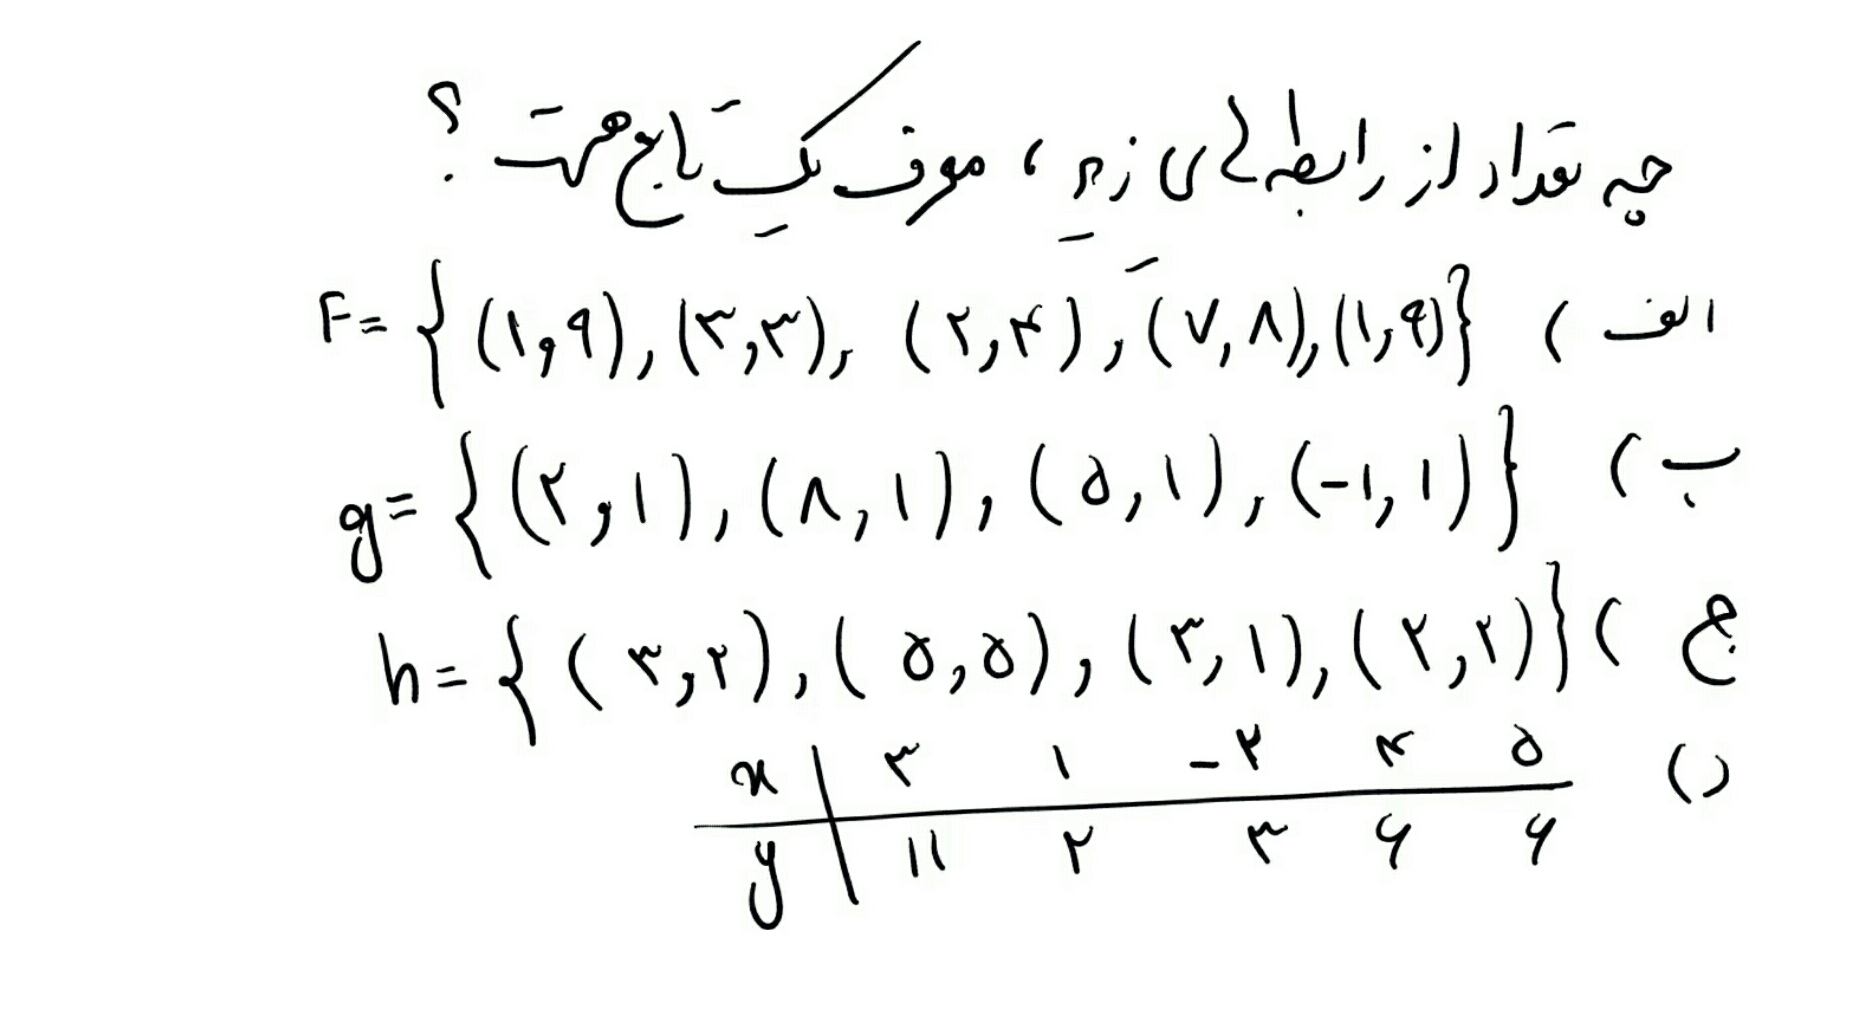 چه تعداد از رابطه های زیرِ ، معرف یکِ تَابع هست ؟
الف ) F = {(۱,۹), (۳,۳), (۲,۴), (۷,۸), (۱,۹)}
ب ) g = {(۲,۱), (۸,۱), (۵,۱), (-۱,۱)}
ج ) h = {(۳,۲), (۵,۵), (۳,۱), (۲,۲)}
د ) x | ۳ ۱ -۲ ۴ ۵
y | ۱۱ ۲ ۳ ۶ ۶